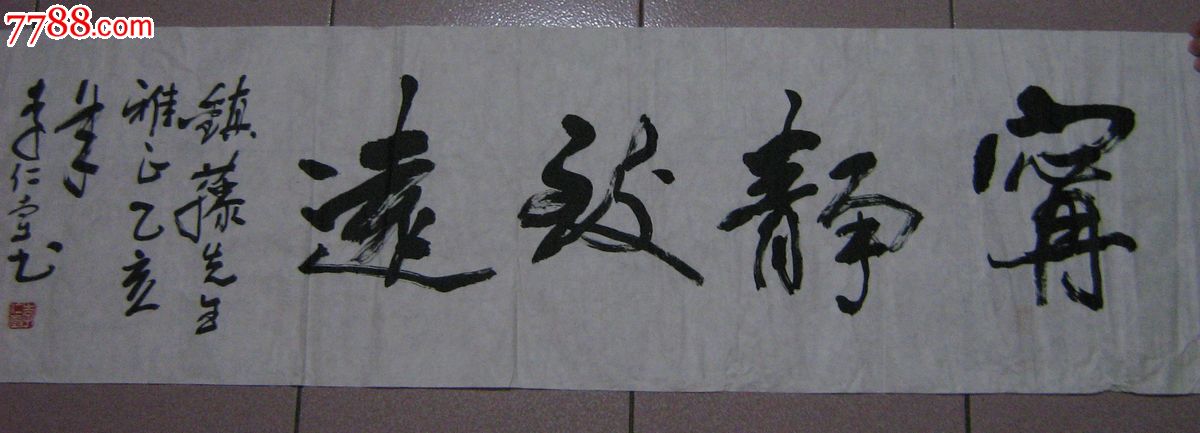 7788.com
寧靜致遠
鎮藩先生
雅正乙亥
李仁